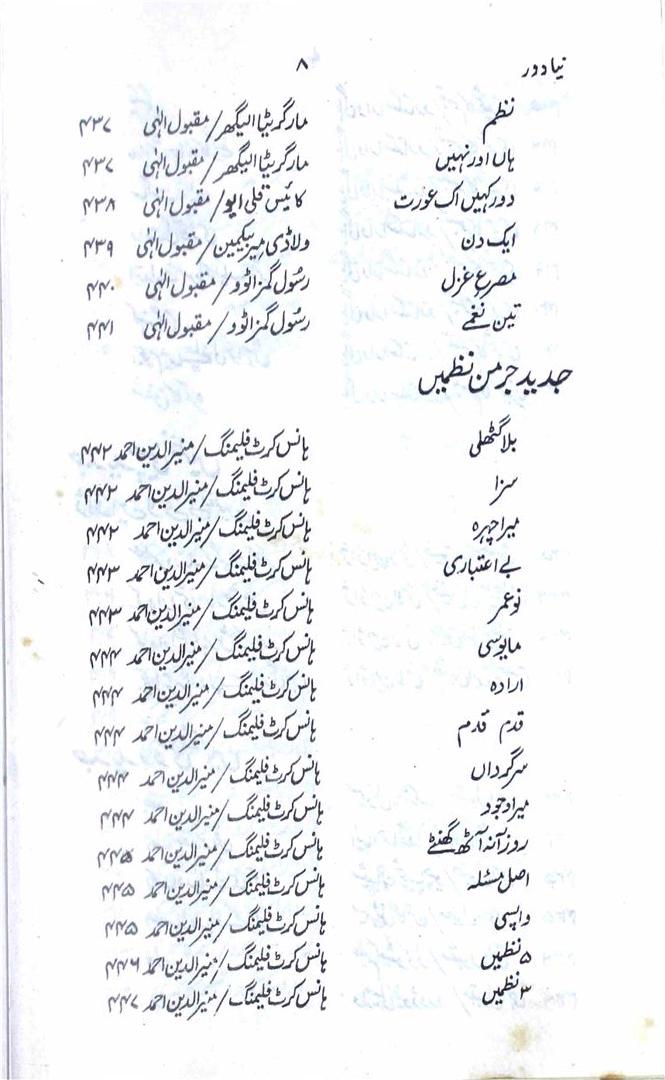 نیا دور ۸
نظم مارگریٹا الیگھر/مقبول الٰہی ۴۳۷
ہاں اور نہیں مارگریٹا الیگھر/مقبول الٰہی ۴۳۷
دور کہیں اک عورت کائیس قلی ایو/مقبول الٰہی ۴۳۸
ایک دن ولاڈی میر بیکمین/مقبول الٰہی ۴۳۹
مصرعِ غزل رسُول گمزاٹوو/مقبول الٰہی ۴۴۰
تین نغمے رسُول گمزاٹوو/مقبول الٰہی ۴۴۱
جدید جرمن نظمیں
بلا گٹھلی ہانس کرٹ فلیمنگ/منیر الدین احمد ۴۴۲
سزا ہانس کرٹ فلیمنگ/منیر الدین احمد ۴۴۲
میرا چہرہ ہانس کرٹ فلیمنگ/منیر الدین احمد ۴۴۲
بے اعتباری ہانس کرٹ فلیمنگ/منیر الدین احمد ۴۴۳
نو عمر ہانس کرٹ فلیمنگ/منیر الدین احمد ۴۴۳
مایوسی ہانس کرٹ فلیمنگ/منیر الدین احمد ۴۴۴
ارادہ ہانس کرٹ فلیمنگ/منیر الدین احمد ۴۴۴
قدم قدم ہانس کرٹ فلیمنگ/منیر الدین احمد ۴۴۴
سرگرداں ہانس کرٹ فلیمنگ/منیر الدین احمد ۴۴۴
میرا وجود ہانس کرٹ فلیمنگ/منیر الدین احمد ۴۴۴
روزآنہ آٹھ گھنٹے ہانس کرٹ فلیمنگ/منیر الدین احمد ۴۴۵
اصل مسئلہ ہانس کرٹ فلیمنگ/منیر الدین احمد ۴۴۵
واپسی ہانس کرٹ فلیمنگ/منیر الدین احمد ۴۴۵
۵ نظمیں ہانس کرٹ فلیمنگ/منیر الدین احمد ۴۴۶
۳ نظمیں ہانس کرٹ فلیمنگ/منیر الدین احمد ۴۴۷